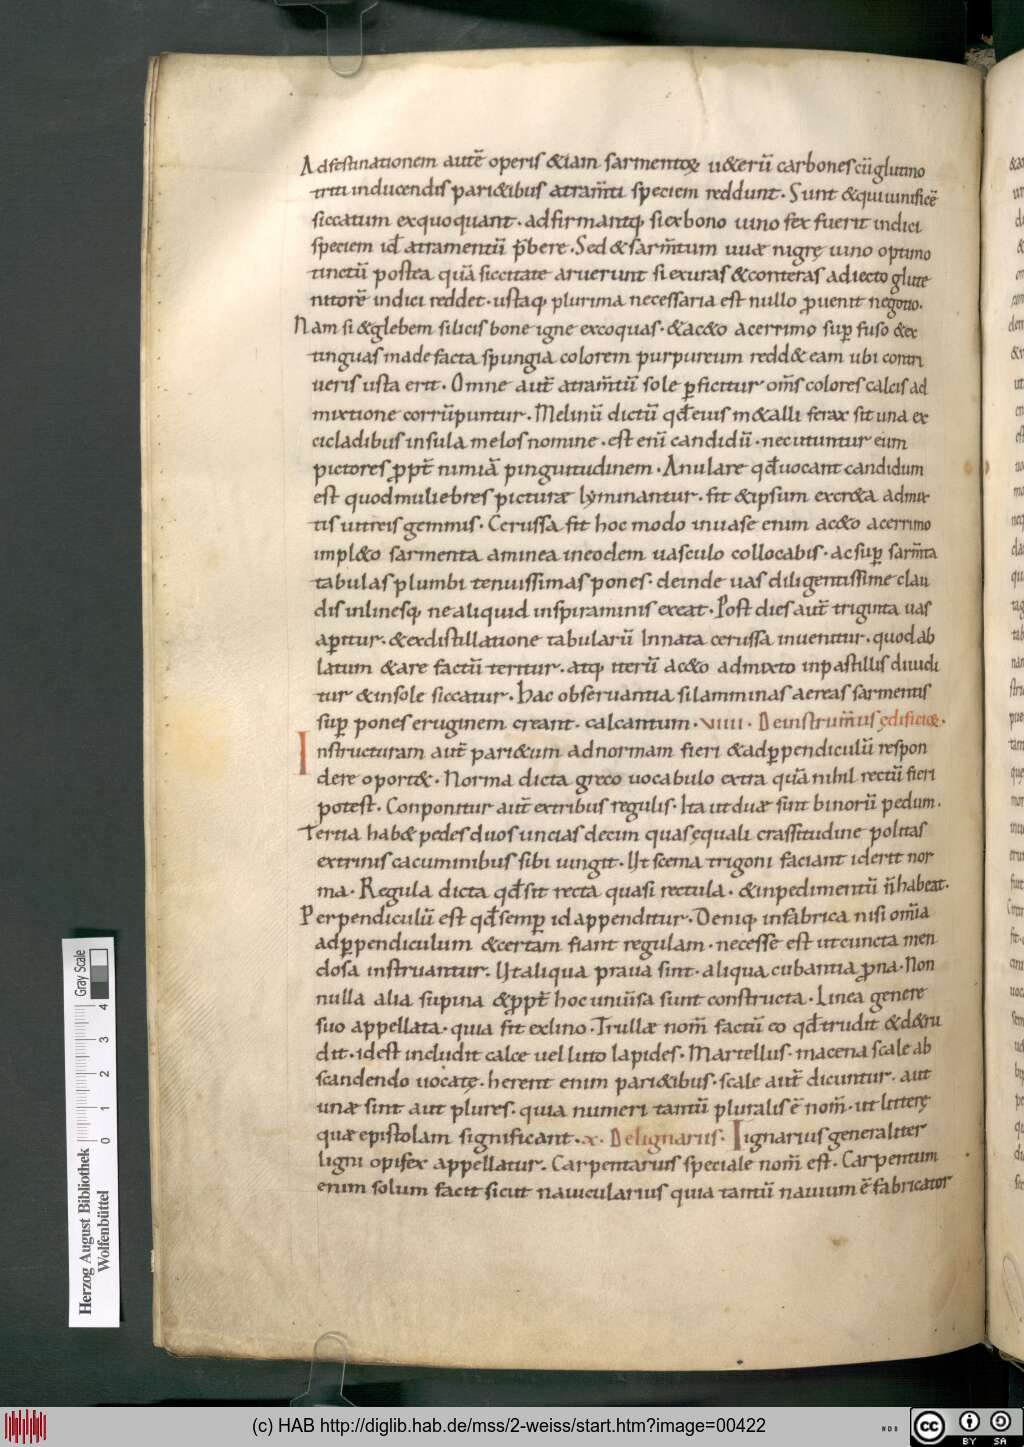 Adfestinationem autē operis &iam sarmentoꝝ u&erū carbones cū glutino
triti inducendis pari&ibus atram̄ti speciem reddunt. Sunt &qui uini ficē
siccatum exquoquant. adfirmantq; si exbono uino fex fuerit indici
speciem id̄ atramentū p̄bere. Sed &sarm̄tum uuæ nigrę uino optimo
tinctū postea quā siccitate aruerunt si exuras &conteras adiecto glute
nitorē indici reddet. ustaq; plurima necessaria est nullo ꝓuenit negotio.
Nam si &glebem silicis bone igne excoquas. &ac&o acerrimo suꝑ fuso &ex
tinguas madefacta spungia colorem purpureum redd& eam ubi contri
ueris usta erit. Omne aut̄ atram̄tū sole ꝑficitur om̄s colores calcis ad
mixtione corrūpuntur. Melinū dictū qd̄ eius m&alli ferax sit una ex
cicladibus insula melos nomine. est enī candidū. nec utuntur eum
pictores ꝓpt̄ nimiā pinguitudinem. Anulare qd̄ uocant candidum
est quod muliebres picturæ lyminantur. fit &ipsum excr&a admix
tis uitreis gemmis. Cerussa fit hoc modo inuase enim ac&o acerrimo
impl&o sarmenta aminea ineodem uasculo collocabis. ac suꝑ sarm̄ta
tabulas plumbi tenuissimas pones. deinde uas diligentissime clau
dis inlinesq; ne aliquid inspiraminis exeat. Post dies aut̄ triginta uas
aꝑitur. &exdistillatione tabularū Innata cerussa inuenitur. quod ab
latum &are factū teritur. atq; iterū ac&o admixto inpastillis diuidi
tur &insole siccatur. Hac obseruantia si lamminas aereas sarmentis
suꝑ pones eruginem creant. calcantum. VIIII. De instrum̄tis ędificioꝝ.
Instructuram aut̄ pari&um adnormam fieri &adꝑpendiculū respon
dere oport&. Norma dicta greco uocabulo extra quā nihil rectū fieri
potest. Conponitur aut̄ extribus regulis. Ita ut duæ sint binorū pedum.
Tertia hab& pedes duos uncias decim quas ęquali crassitudine politas
extrinis cacuminibus sibi iungit. Ut scema trigoni faciant id erit nor
ma. Regula dicta qd̄ sit recta quasi rectula. &inpedimentū n̄ habeat.
Perpendiculū est qd̄ semꝑ id appenditur. Deniq; infabrica nisi om̄ia
adꝑpendiculum &certam fiant regulam. necesse est ut cuncta men
dosa instruantur. Ut aliqua praua sint. aliqua cubantia ꝓna. Non
nulla alia supina &ꝓpt̄ hoc uniūsa sunt constructa. Linea genere
suo appellata. quia fit exlino. Trullæ nom̄ factū eo qd̄ trudit &d&ru
dit. id est includit calce uel luto lapides. Martellus. macena scale ab
scandendo uocatę. herent enim pari&ibus. scale aut̄ dicuntur. aut
unæ sint aut plures. quia numeri tantū pluralis ē nom̄. ut litterę
quæ epistolam significant. x. De lignariis. Lignarius generaliter
ligni opifex appellatur. Carpentarius speciale nom̄ est. Carpentum
enim solum facit sicut nauicularius quia tantū nauium ē fabricator
Gray Scale
4
3
2
1
0
Herzog August Bibliothek
Wolfenbüttel
(c) HAB http://diglib.hab.de/mss/2-weiss/start.htm?image=00422
cc BY SA